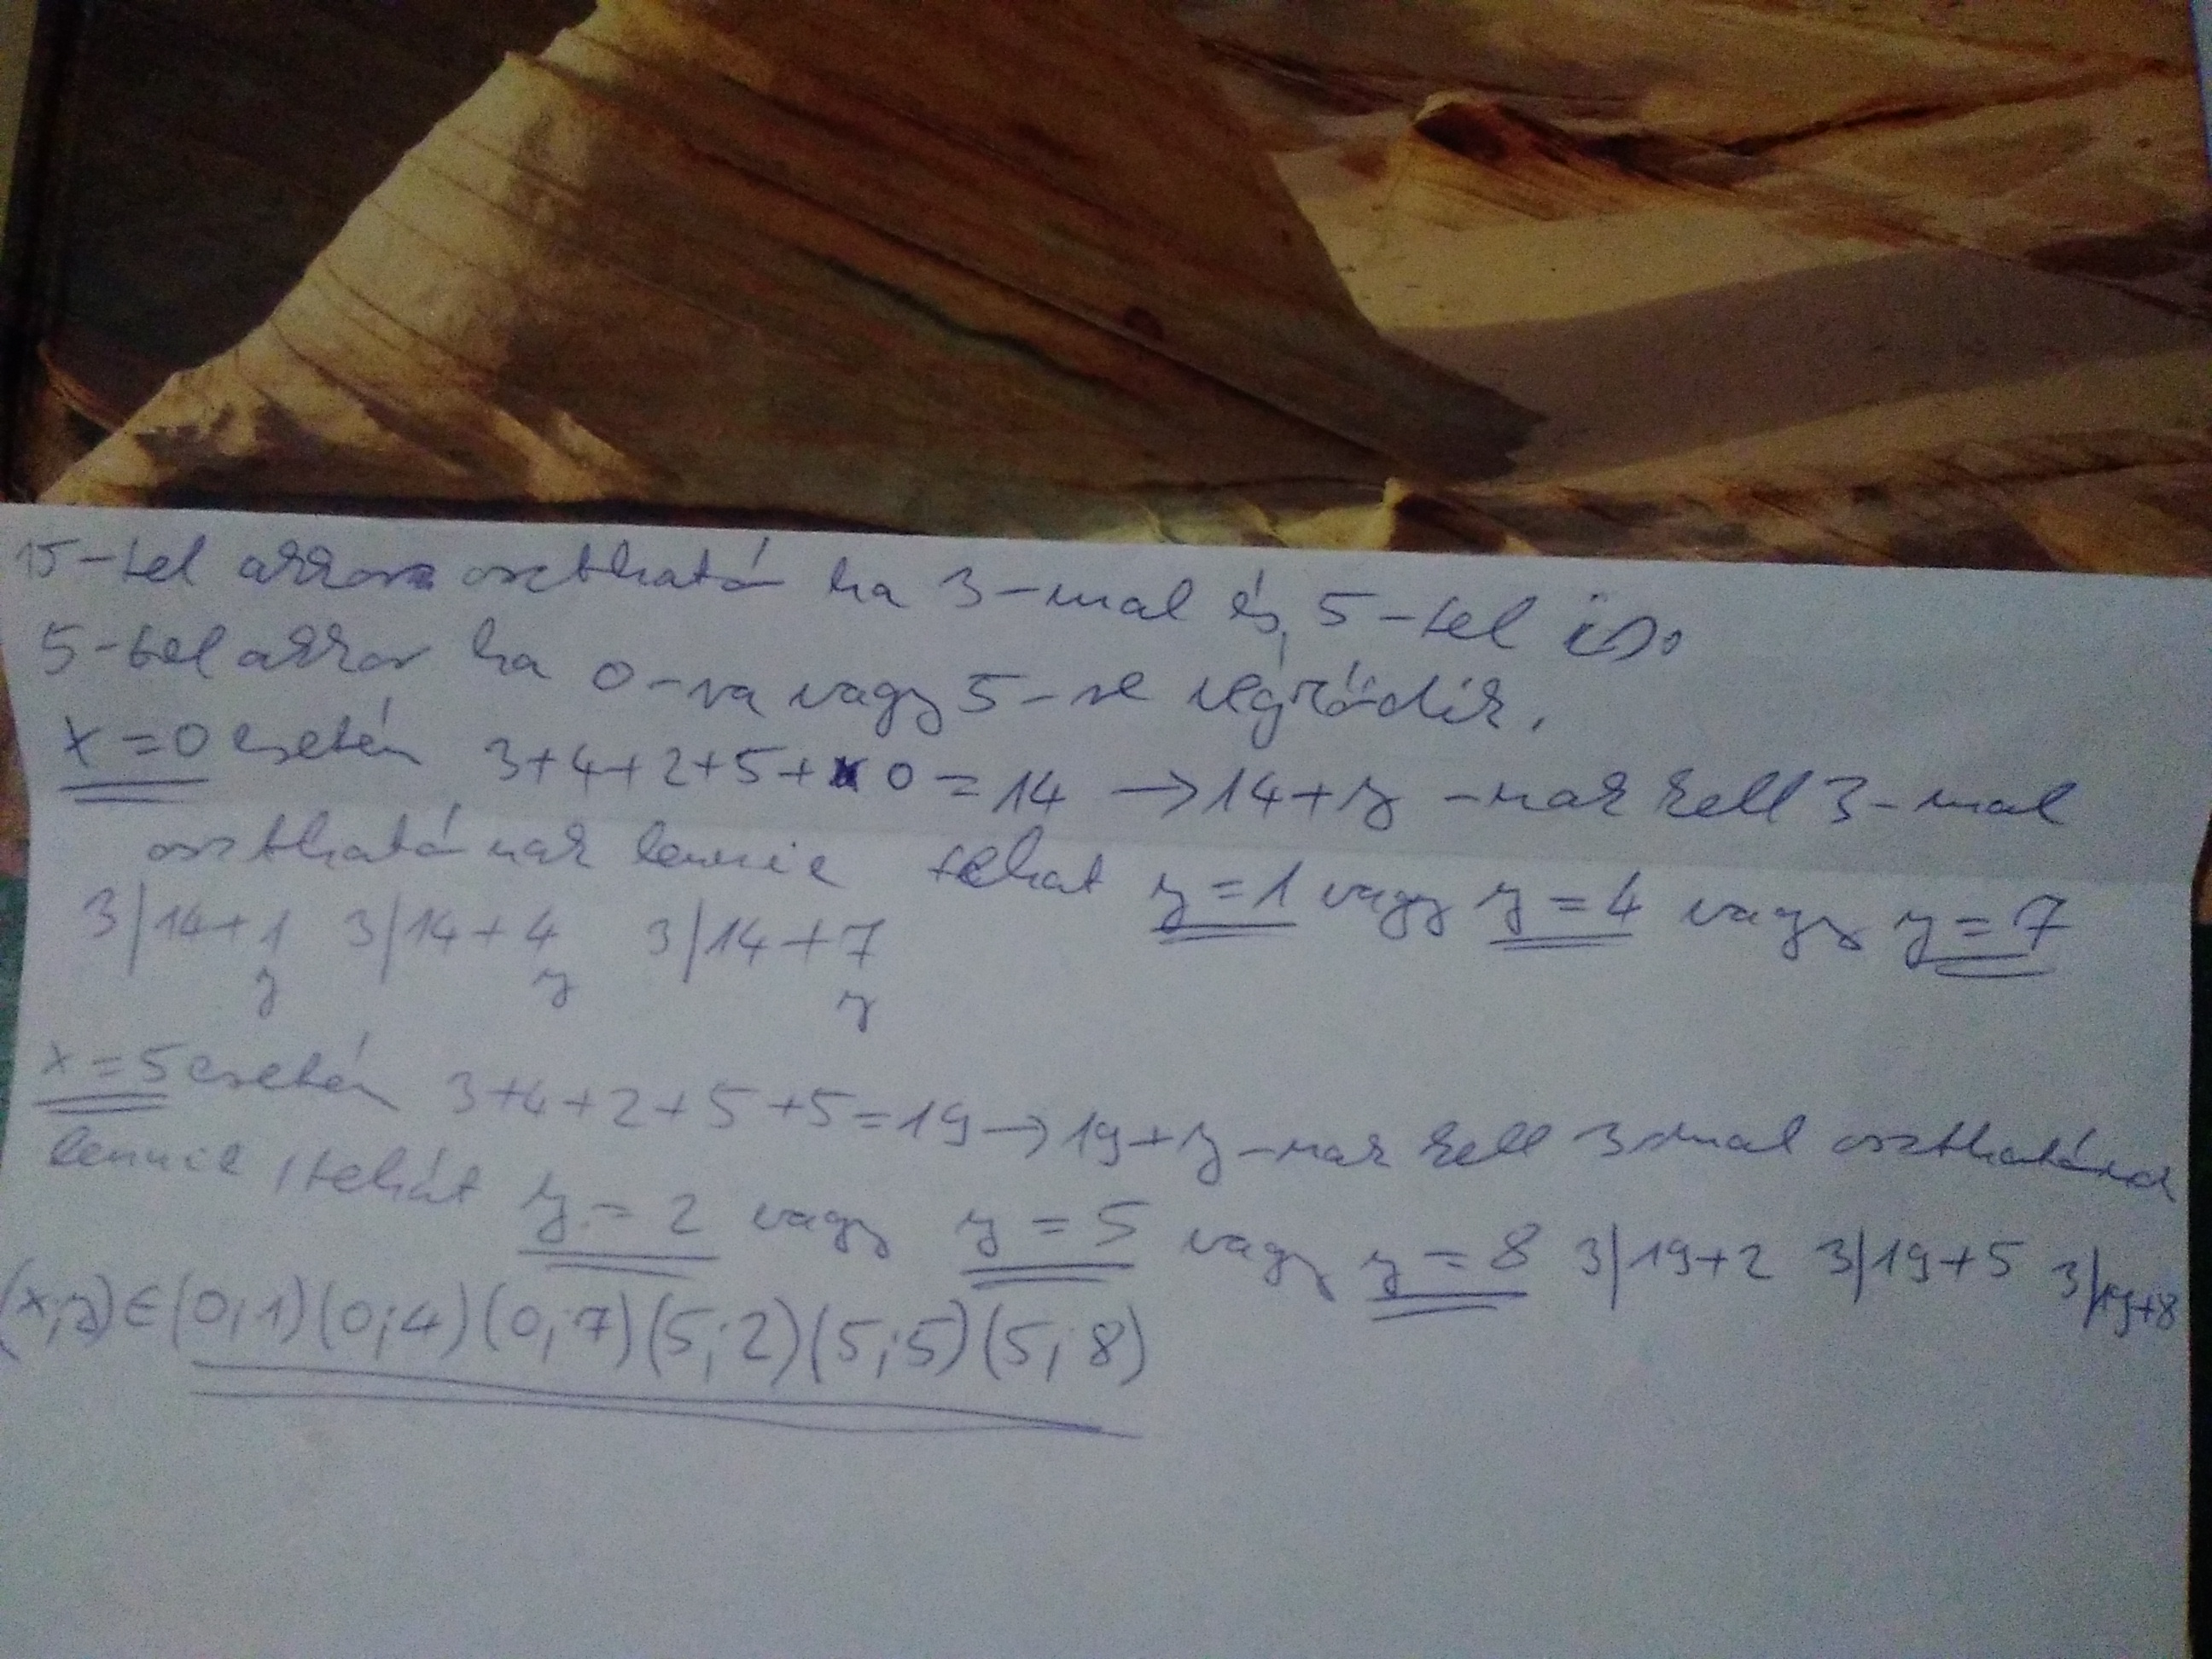 15-tel akkor osztható ha 3-mal és 5-tel is.
5-tel akkor ha 0-va vagy 5-re végződik.
x=0 esetén 3+4+2+5+0=14 →14+y -nak kell 3-mal
oszthatónak lennie tehat y=1 vagy y=4 vagy y=7
3|14+1 3|14+4 3|14+7
y y y
x=5 esetén 3+4+2+5+5=19→19+y-nak kell 3mal oszthatónak
lennie, tehát y=2 vagy y=5 vagy y=8 3|19+2 3|19+5 3|19+8
(x;y)∈(0;1)(0;4)(0;7)(5;2)(5;5)(5;8)